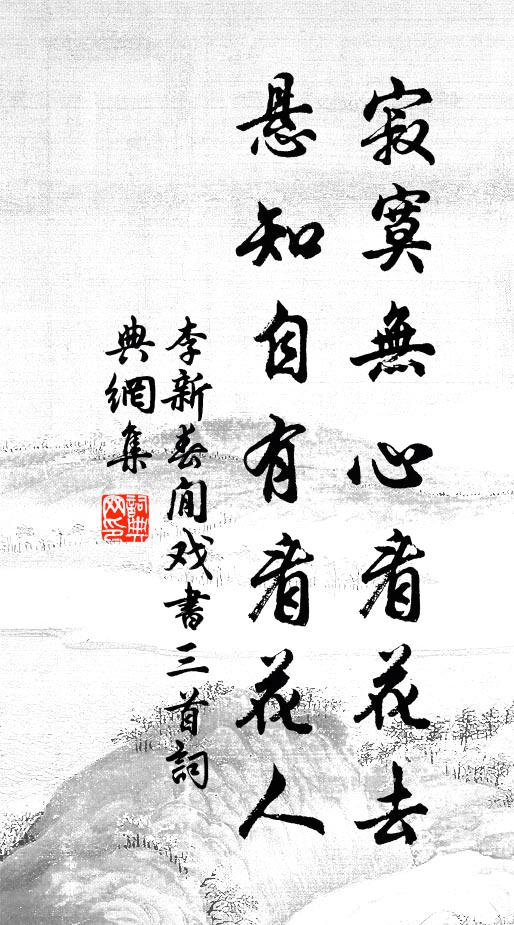 寂寞無心看花去
悬知自有看花人
李新春闲戏書三首詞
典網集
詞典
网印